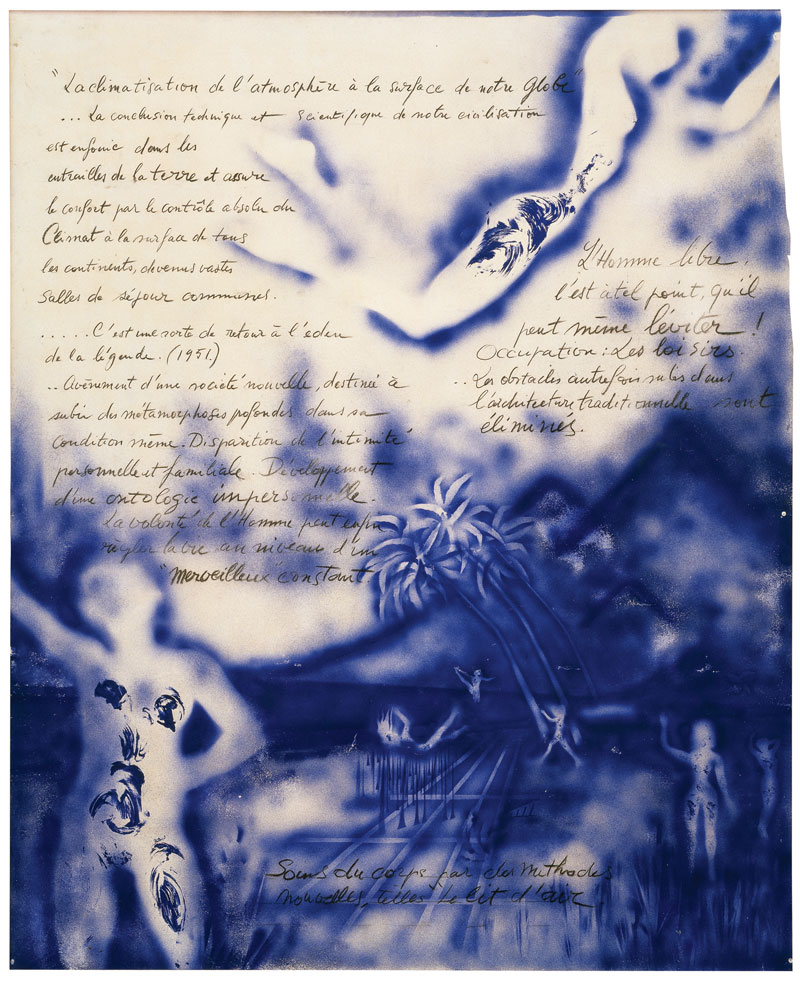 "La climatisation de l'atmosphère à la surface de notre globe"
... La conclusion technique et scientifique de notre civilisation
est enfouie dans les
entrailles de la terre et assure
le confort par le contrôle absolu du
Climat à la surface de tous
les continents, devenus vastes
salles de séjour communes.
..... C'est une sorte de retour à l'eden
de la légende. (1951.)
.. Avènement d'une société nouvelle, destinée à
subir des métamorphoses pofondes dans sa
condition même. Disparition de l'intimité
personnelle et familiale. Développement
d'une ontologie impersonnelle.
La volonté de l'Homme peut enfin
régler la vie au niveau d'un
"Merveilleux" constant
L'Homme libre,
l'est à tel point, qu'il
peut même léviter !
Occupation : Les loisirs.
... Les obstacles autrefois subis dans
l'architecture traditionnelle sont
éliminés.
Soins du corps par des méthodes
nouvelles, telles le lit d'air.